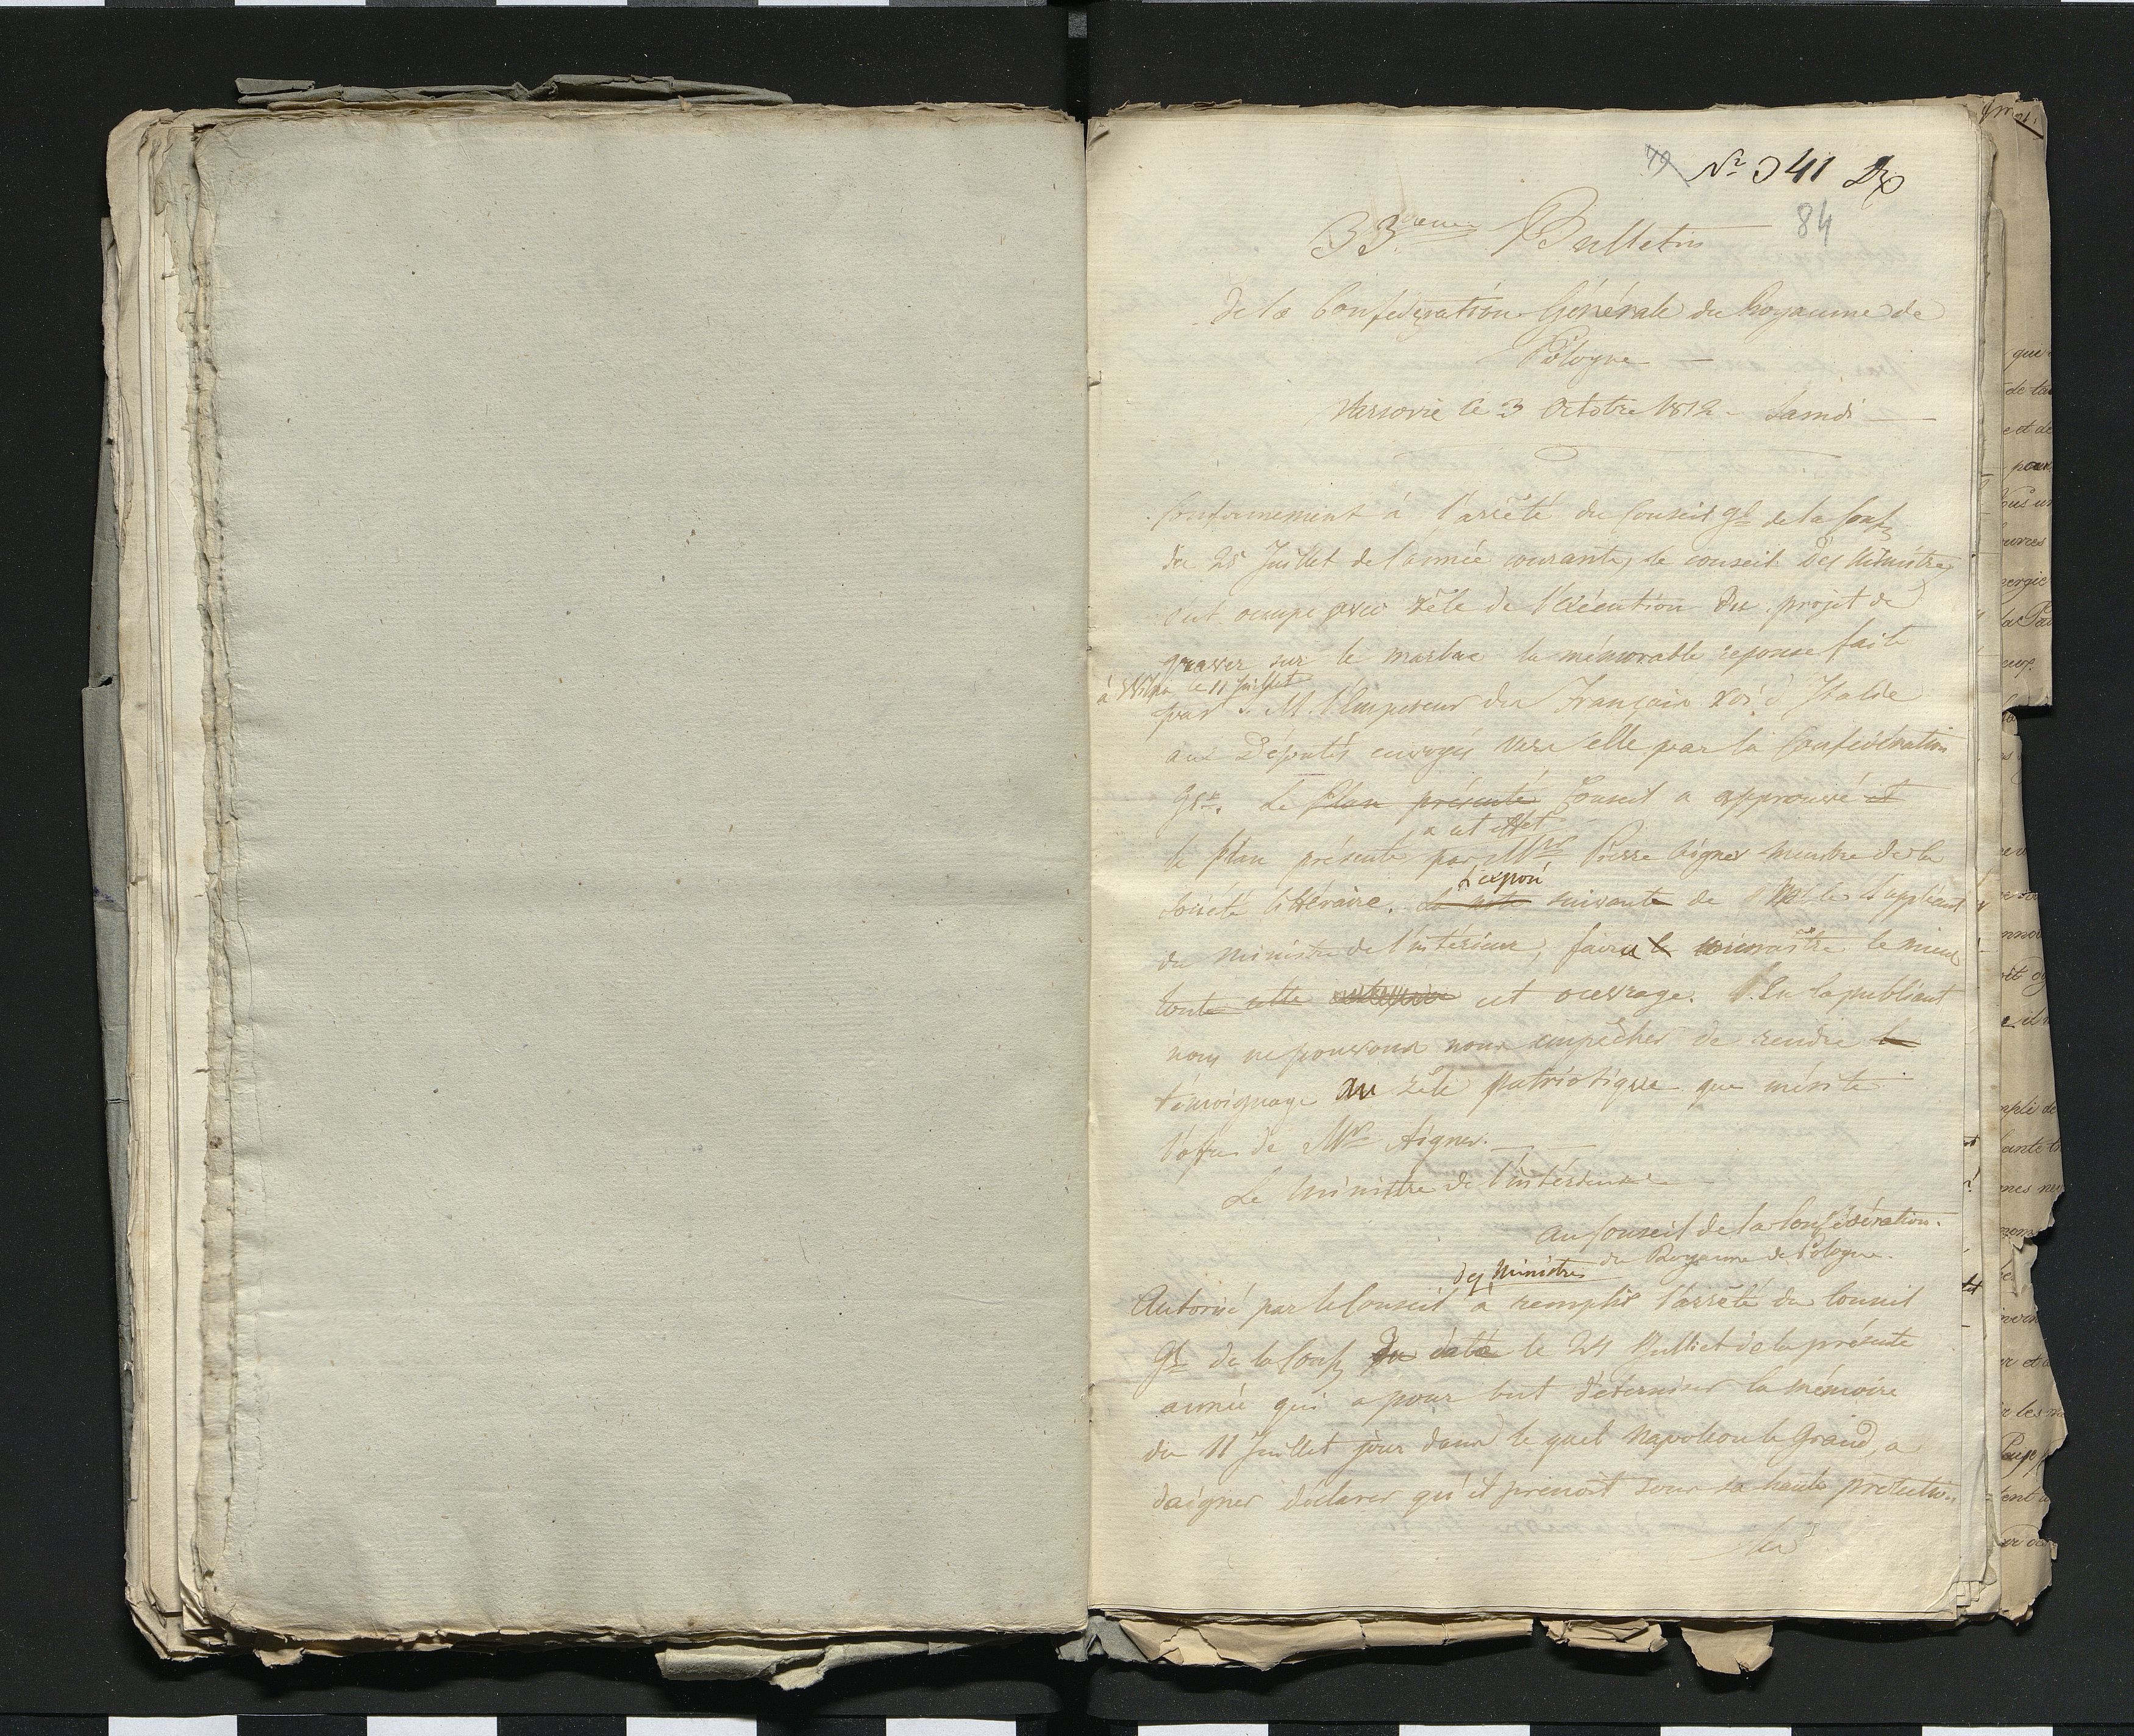 79 Nr 341
84
33eme Bulletin
de la Confédération Générale du Royaume de
Pologne
Varsovie le 3 Octobre 1812 - Samdi
Conformement à l'arrêté du Conseil gl de la Conf
du 25 Juillet de l'année courante, le conseil des Ministres
occupé avec zêle de l'exécution du projet de
graver sur le marbre la mémorable reponse faite
à Wilna le 11 Juillet
par S. M. l'Empereur des Français roi d'Italie
aux Députés envoyés vers elle par la Confédération
Gle. Le plan présenté Conseil a approuvé et
à cet effet
le plan présenté par Mr Pierre Aigner membre de la
l'exposé
Société littéraire. La note suivante de
du Ministre de l'intérieur, faire le connaître le mieux
toute cette cet ouvrage. En la publiant
nous ne pouvons nous empêcher de rendre le
témoignage au zêle patriotique que mérite
l'offre de Mr Aigner.
Le Ministre de l'intérieur
au Conseil de la Confédération
du Royaume de Pologne.
des Ministres
Autorisé par le Conseil à remplir l'arrêté du Conseil
Gl de la Conf du date le 24 Julliet de la présente
année qui a pour but d'éterniser la mémoire
du 11 Juillet jour dans le quel Napoléon le Grand, a
daigner déclarer qu'il prenoit sous sa haute protection